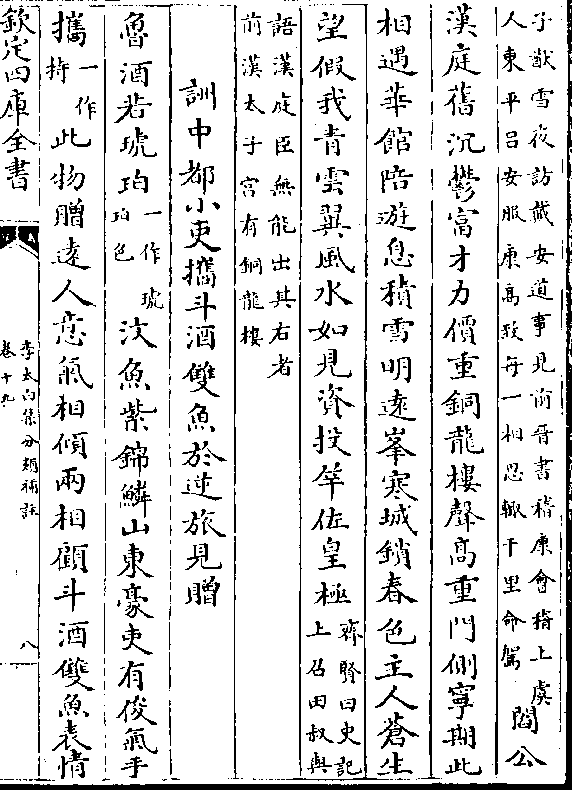 子猷雪夜訪戴安道事見前晉書稽康會稽上虞
人東平吕安服康高致每一相思輙千里命駕
閻公
漢庭舊沉鬱富才力價重銅龍樓聲高重門側寧期此
相遇華館陪遊息積雪明逺峯寒城鎖春色主人蒼生
望假我青雲翼風水如見資投竿佐皇極
齊賢曰史記
上召田叔與
語漢庭臣無能出其右者
前漢太子宫有銅龍樓
詶中都小吏攜斗酒雙魚於逆旅見贈
魯酒若琥珀
一作琥
珀色
汶魚紫錦鱗山東豪吏有俊氣手
攜
一作
持
此物贈逺人意氣相傾兩相顧斗酒雙魚表情
欽定四庫全書
李太白集分類補註
卷十九
八